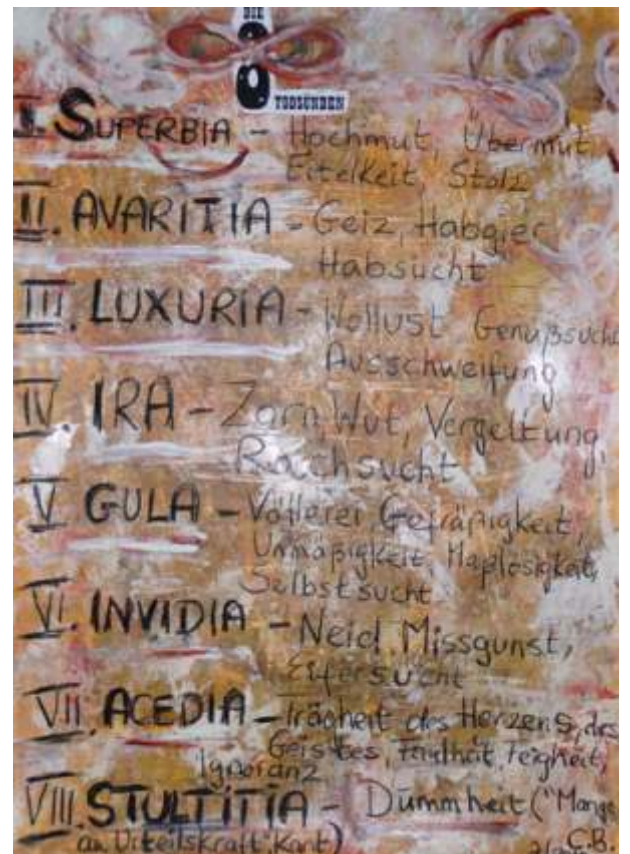 DIE
8
TODSÜNDEN
I. SUPERBIA - Hochmut, Übermut,
Eitelkeit, Stolz
II. AVARITIA - Geiz, Habgier
Habsucht
III. LUXURIA - Wollust Genußsucht
Ausschweifung
IV IRA - Zorn, Wut, Vergeltung,
Rachsucht
V GULA - Völlerei, Gefräßigkeit,
Unmäßigkeit, Maßlosigkeit,
Selbstsucht
VI. INVIDIA - Neid, Missgunst,
Eifersucht
VII. ACEDIA - Trägheit des Herzens, des
Geistes, Faulheit, Feigheit,
Ignoranz
VIII. STULTITIA - Dummheit ("Mange
an Urteilskraft" Kant)
C.B.